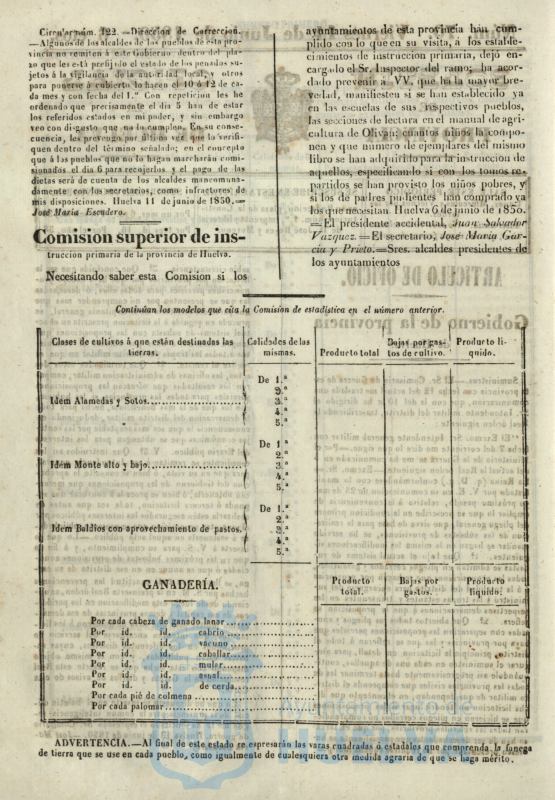 Circular núm. 122.—Direccion de Correccion.
—Algunos de los alcaldes de los pueblos de esta pro-
vincia no remiten á este Gobierno dentro del pla-
zo que les está prefijado el estado de los penados su-
jetos á la vigilancia de la autoridad local, y otros
para ponerse á cubierto lo hacen el 10 ó 12 de ca-
da mes y con fecha del 1.º Con repeticion les he
ordenado que precisamente el dia 5 han de estar
los referidos estados en mi poder, y sin embargo
veo con disgusto que no lo cumplen. En su conse-
cuencia, les prevengo por última vez que la verifi-
quen dentro del término señalado; en el concepto
que á los pueblos que no lo hagan marcharán comi-
sionados el dia 6 para recojerlos y el pago de las
dietas será de cuenta de los alcaldes mancomuna-
damente con los secretarios, como infractores de
mis disposiciones. Huelva 11 de junio de 1850.—
José Maria Escudero.
Comision superior de ins-
truccion primaria de la provincia de Huelva.
Necesitando saber esta Comision si los
ayuntamientos de esta provincia han cum-
plido con lo que en su visita, á los estable-
cimientos de instruccion primaria, dejó en-
cargado el Sr. Inspector del ramo; ha acor-
dado prevenir á VV. que á la mayor bre-
vedad, manifiesten si se han establecido ya
en las escuelas de sus respectivos pueblos,
las secciones de lectura en el manual de agri-
cultura de Olivan; cuantos niños la compo-
nen y que número de ejemplares del mismo
libro se han adquirido para la instruccion de
aquellos, especificando si con los tomos re-
partidos se han provisto los niños pobres, y
si los de padres pudientes han comprado ya
los que necesitan. Huelva 6 de junio de 1850.
=El presidente accidental, Juan Salvador
Vazquez.=El secretario, José Maria Gar-
cia y Prieto.=Sres. alcaldes presidentes de
los ayuntamientos
Continúan los modelos que cita la Comision de estadística en el número anterior.
Clases de cultivos á que están destinadas las tierras. Calidades de las mismas. Producto total Bajas por gas- tos de cultivo. Producto lí- quido.
De 1.ª
2.ª
Idem Alamedas y Sotos. 3.ª
4.ª
5.ª
De 1.ª
2.ª
Idem Monte alto y bajo. 3.ª
4.ª
5.ª
De 1.ª
2.ª
Idem Baldios con aprovechamiento de pastos. 3.ª
4.ª
5.ª
GANADERÍA. Producto total. Bajas por gastos. Producto líquido.
Por cada cabeza de ganado lanar
Por id. id. cabrio
Por id. id. vacuno
Por id. id. caballar
Por id. id. mular
Por id. id. asnal
Por id. id. de cerda
Por cada pié de colmena
Por cada palomar
Ayuntamiento de
HUELVA
ADVERTENCIA.—Al final de este estado se expresarán las varas cuadradas ó estadales que comprenda la fanega
de tierra que se use en cada pueblo, como igualmente de cualesquiera otra medida agraria de que se haga mérito.